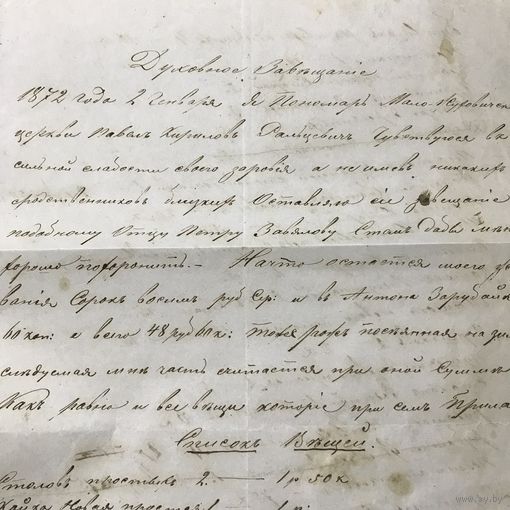 Духовное Завѣщаніе
1872 года 2 Генваря я Пономарь Мало-
церкви Павелъ Кириловъ Ральцевичъ Чувствуюся въ
сильной слабости своего здоровія а неимевъ никакихъ
сродственниковъ близкихъ Оставляю сіе завещаніе
подабному Отцу Петру Завялову Стемъ дабы мене
хорошо похоронить.— Начто остается моего
ванія Сорокъ восемъ руб Сер: и въ Антона Зарубайк
60 коп: а всего 48 руб 60 к: тоже рожъ посеянная на зим
следуемая мне часть считается при оной Сумме
Какъ равно и все вещи которіе при семъ Прила
Списокъ Вещей.
Столовъ простыхъ 2 — 1 р 50 к
Новая 1
www.ay.by